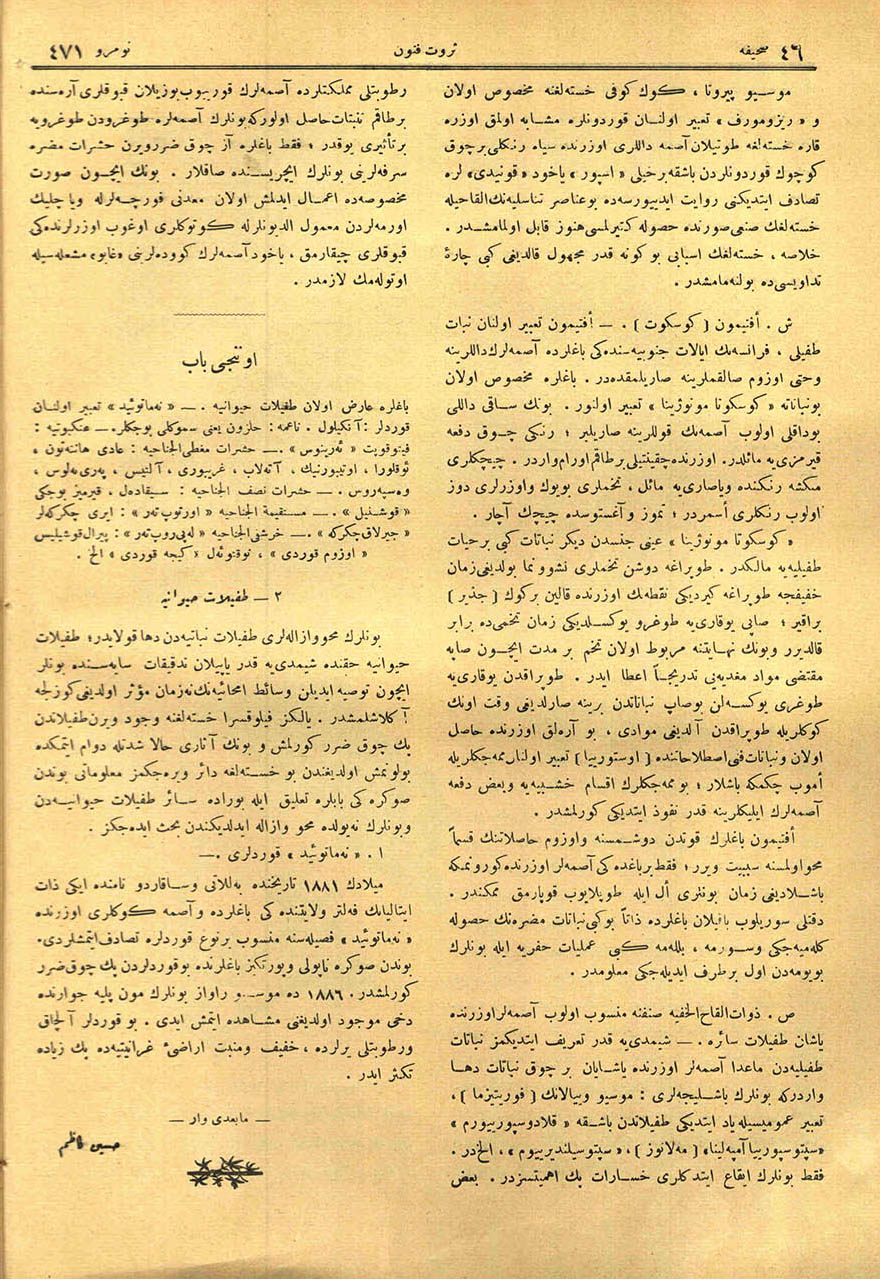 ٤٦ صحيفه
ثروت فنون
نومرو ٤٧١
موسيو پيروتا ، كوك كوفى خسته‌لغنه مخصوص اولان
و « ريزومورف » تعبير اولنان قوردونلره مشابه اولمق اوزره
قاره خسته‌لغه طوتيلان آصمه داللرى اوزرنده سياه رنكلى برچوق
كوچوك قوردونلردن باشقه برخيلى « اسپور » ياخود « قونيدى » لره
تصادف ايتديكنى روايت ايدييورسه‌ده بوعناصر تناسليه‌نك القاحيله
خسته‌لغك صنعى صورنده حصوله كتيرلمسى هنوز قابل اولمامشدر .
خلاصه ، خسته‌لغك اسبابى بو كونه قدر مجهول قالديغى كبى چارهٔ
تداويسى‌ده بولنه‌مامشدر .
ش . أفتيمون ( كوسكوت ) . — أفتيمون تعبير اولنان نبات
طفيلى ، فرانسه‌نك ايالات جنوبيه‌سنده‌كى باغلرده آصمه‌لرك داللرينه
وحتى اوزوم صالقملرينه صاريلمقده‌در . باغلره مخصوص اولان
بونباتاته « كوسكوتا مونوژينا » تعبير اولنور . بونك ساقى داللى
بوداقلى اولوب آصمه‌نك قوللرينه صاريلير ؛ رنكى چوق دفعه
قيرمزى‌يه مائلدر . اوزرنده چقينتيلى برطاقم اورام واردر . چيچكلرى
منكشه رنكنده وياصارى‌يه مائل ، تخملرى بويوك واوزرلرى دوز
اولوب رنكلرى أسمردر ؛ تموز و آغستوسده چيچك آچار .
« كوسكوتا مونوژينا » عينى جنسدن ديكر نباتات كبى برحيات
طفيليه‌يه مالكدر . طوپراغه دوشن تخملرى نشوونما بولديغى زمان
خفيفجه طوپراغه كيرديكى نقطه‌نك اوزرنده قالين بركوك ( جذير )
براقير ؛ صاپى يوقارى‌يه طوغرو يوكسلديكى زمان تخمى‌ده برابر
قالديرر وبونك نهايتنه مربوط اولان تخم بر مدت ايچون صاپه
مقتضى مواد مغديه‌يى تدريجاً اعطا ايدر . طوپراقدن يوقارى‌يه
طوغرى يوكسه‌لن بوصاپ نباتاتدن برينه صارلديغى وقت اونك
كوكلريله طوپراقدن آلديغى موادى ، بو آره‌لق اوزرنده حاصل
اولان ونباتات فنى اصطلاحاتنده ( اوستورييا ) تعبير اولنان ممه‌جكلريله
أموب چكمكه باشلار ؛ بوممه‌جكلرك اقسام خشبيه‌يه وبعض دفعه
آصمه‌لرك ايليكلرينه قدر نفوذ ايتديكى كورلمشدر .
أفتيمون باغلرك قوتدن دوشمسنه واوزوم حاصلاتنك قسماً
محواولمسنه سببيت ويرر ؛ فقط برباغده‌كى آصمه‌لر اوزرنده كورونمكه
باشلاديغى زمان بونلرى أل ايله طوپلايوب قوپارمق ممكندر .
دقتلى سوريلوب باقيلان باغلرده ذاتاً بوكبى نباتات مضره‌نك حصوله
كله‌ميه‌جكى وسورمه ، بللمه كبى عمليات حفريه ايله بونلرك
بويومه‌دن اول برطرف ايديله‌جكى معلومدر .
ص . ذوات القاح الخفيه صنفنه منسوب اولوب آصمه‌لر اوزرنده
ياشان طفيلات سائره . — شيمدى‌يه قدر تعريف ايتديكمز نباتات
طفيليه‌دن ماعدا آصمه‌لر اوزرنده ياشايان بر چوق نباتات دها
واردركه بونلرك باشليجه‌لرى : موسيو وييالانك ( فوريتيزما ) ،
تعبير عموميسيله ياد ايتديكى طفيلاتدن باشقه « قلادوسپورييورم »
« سپتوسپورييا آمپه‌لينا » ( مه‌لانوز ) ، « سپتوسيلنديرييوم » ، الخ‌در .
فقط بونلرك ايقاع ايتدكلرى خسارات پك اهميتسزدر . بعض
رطوبتلى مملكتلرده آصمه‌لرك قورييوب بوزيلان قبوقلرى آره‌سنده
برطاقم نبتات حاصل اولورکه بونلرك آصمه‌لره طوغرودن طوغرويه
برتأثيرى يوقدر ؛ فقط باغلره آز چوق ضررويرن حشرات مضره
سرفه‌لرينى بونلرك ايچريسنده صاقلار . بونك ايچون صورت
مخصوصه‌ده اعمال ايدلمش اولان معدنى فورچه‌لرله ويا چليك
اورمه‌لردن معمول الديونلرله كوتوكلرى اوغوب اوزرلرنده‌كى
قبوقلرى چيقارمق ، ياخود آصمه‌لرك كووده‌لرينى « غابو » مشعله‌سيله
اوتوله‌مك لازمدر .
اوننجى باب
باغلره عارض اولان طفيلات حيوانيه . — « نه‌ماتوئيد » تعبير اولنان
قوردلر : آنكيلول . ناعمه : حلزون يعنى سموكلى بوجكلر . — عنكبوتيه :
فيتوقوپت « ئه‌رينوس » . — حشرات مغطى الجناحيه : عادى هانته‌تون ،
ئوقلورا ، اوتيورنيك ، آته‌لاب ، غريبورى ، آلتيس ، په‌رى‌ته‌لوس ،
وه‌سپه‌روس . — حشرات نصف الجناحيه : سيقاده‌ل ، قيرميز بوجكى
« قوشنيل » . — مستقيمة الجناحيه « اورتوپ‌تر » : ايرى چكركه‌لر
« جيرلاق چكركه » . — خرشفى الجناحيه « له‌پى‌روپ‌تر » : پيرال قوشيليس
« اوزوم قوردى » ، نوقتوئه‌ل « كيجه قوردى » الخ .
٢ — طفيلات حيوانيه
بونلرك محو وازاله‌لرى طفيلات نباتيه‌دن دها قولايدر ؛ طفيلات
حيوانيه حقنده شيمدى‌يه قدر ياپيلان تدقيقات سايه‌سنده بونلر
ايچون توصيه ايديلن وسائط امحائيه‌نك نه‌زمان مؤثر اولديغى كوزلجه
آكلاشلمشدر . يالكز فيلوقسرا خسته‌لغنه وجود ويرن طفيلاتدن
پك چوق ضرر كورلمش و بونك آثارى حالا شدتله دوام ايتمكده
بولونمش اولديغندن بو خسته‌لغه دائر ويره‌جكمز معلوماتى بوندن
صوكره‌كى بابلره تعليق ايله بوراده سائر طفيلات حيوانيه‌دن
وبونلرك نه‌يولده محو وازاله ايدلديكندن بحث ايده‌جكز .
١ . « نه‌ماتوئيد » قوردلرى . —
ميلادك ١٨٨١ تاريخنده به‌للاتى وساقاردو نامنده ايكى ذات
ايتاليانك فه‌لتر ولايتنده كى باغلرده و آصمه كوكلرى اوزرنده
« نه‌ماتوئيد » فصيله‌سنه منسوب برنوع قوردلره تصادف ايتمشلردى .
بوندن صوكره ناپولى وپورتكيز باغلرنده بوقوردلردن پك چوق ضرر
كورلمشدر . ١٨٨٦ ده موسيو راواز بونلرك مون پليه جوارنده
دخى موجود اولديغنى مشاهده ايتمش ايدى . بو قوردلر آلچاق
ورطوبتلى يرلرده ، خفيف ومنبت اراضىٔ غرانيتيه‌ده پك زياده
تكثر ايدر .
— مابعدى وار —
حسين كاظم